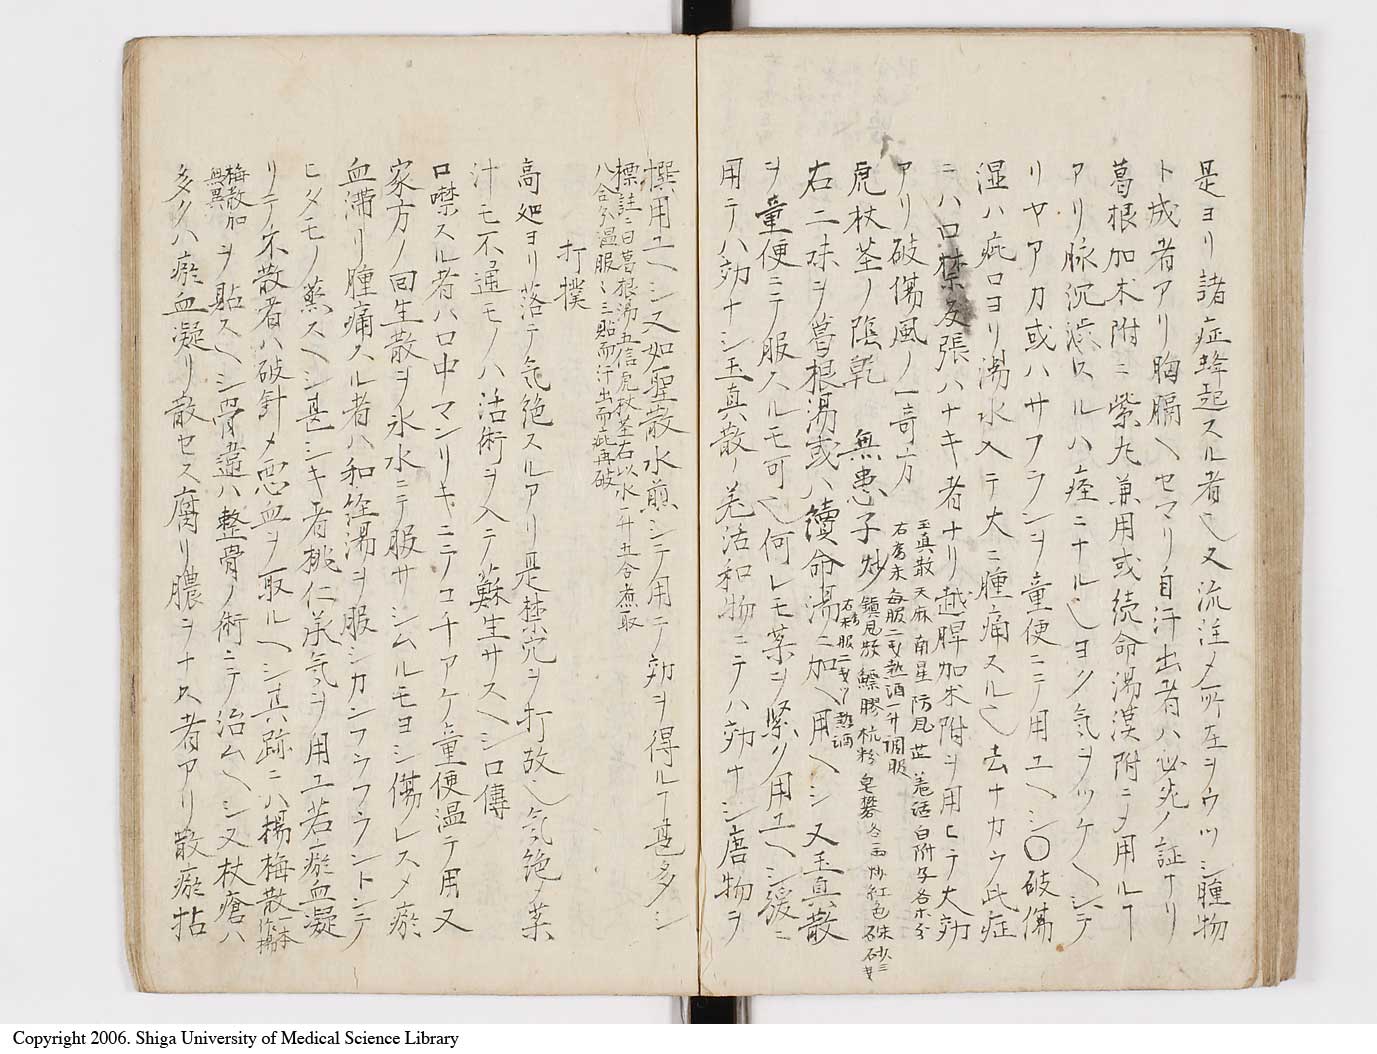 是ヨリ諸症蜂起スル者也又流注〆所在ヲウツシ腫物
ト成者アリ胸膈ヘセマリ自汗出者ハ必死ノ証ナリ
葛根加朮附ニ紫丸兼用或続命湯漢附ニ〆用ルヿ
アリ脉沉渋スルハ痙ニナル也ヨク気ヲツケヘシテ
リヤアカ或ハサフランヲ童便ニテ用ユヘシ〇破傷
湿ハ疵口ヨリ湯水入テ大ニ腫痛スル也去ナカラ此症
ニハ口禁反張ハナキ者ナリ越脾加朮附ヲ用ヒテ大効
アリ破傷風ノ一奇方
玉真散 天麻 南星 防風 芷 羌活 白附子各ホ分
右為末毎服二戔熱酒一升調服
虎杖茎ノ陰乾 無患子炒
鎮風散 鰾膠 杭粉 皂礬 各一両炒紅色 朱砂三戔
右為末服二戔ツヽ熱酒
右二味ヲ葛根湯或ハ續命湯ニ加ヘ用ヘシ又玉真散
ヲ童便ニテ服スルモ可也何レモ薬ヲ緊ク用ユヘシ緩ニ
用テハ効ナシ玉真散ノ羌活和物ニテハ効ナシ唐物ヲ
撰用ユヘシ又如聖散水煎シテ用ニテ効ヲ得ルヿ甚多シ
標註ニ曰葛根湯五信虎杖茎右以水一升五合煮取
八合分温服〻三貼而汗出而疵再破
打撲
高処ヨリ落テ気絶スルアリ是禁穴ヲ打故也気絶〆薬
汁モ不通モノハ活術ヲ入テ蘇生サスヘシ口傳
口噤スル者ハ口中マンリキニテコチアケ童便温テ用又
家方ノ回生散ヲ氷水ニテ服サシムルモヨシ傷レスメ瘀
血滞リ腫痛スル者ハ和経湯ヲ服シカンフラフラントシテ
ヒタモノ蒸スヘシ甚シキ者桃仁承気ヲ用ユ若シ瘀血凝
リテ不散者ハ破針〆悪血ヲ取ルヘシ其跡ニハ楊梅散一本作楊
梅散加無異ヲ貼スヘシ骨違ハ整骨ノ術ニテ治ムヘシ又杖瘡ハ
多クハ瘀血凝リ散セス腐リ膿ヲナス者アリ散瘀帖